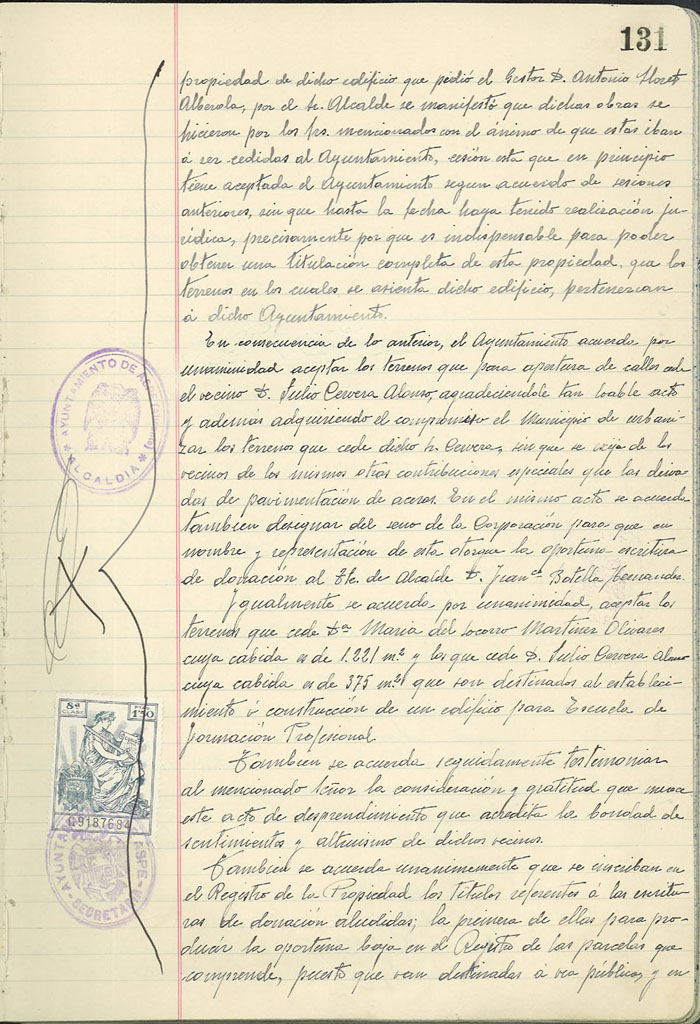 131
propiedad de dicho edificio que pidió el Gestor D. Antonio Lloret
Alberola, por el Sr. Alcalde se manifestó que dichas obras se
hicieron por los Srs. mencionados con el ánimo de que estas iban
á ser cedidas al Ayuntamiento, cesión esta que en principio
tiene aceptada el Ayuntamiento segun acuerdo de sesiones
anteriores, sin que hasta la fecha haya tenido realización ju-
rídica, precisamente por que es indispensable para poder
obtener una titulación completa de esta propiedad, que los
terrenos en los cuales se asienta dicho edificio, pertenezcan
á dicho Ayuntamiento.
En consecuencia de lo anterior, el Ayuntamiento acuerda por
unanimidad aceptar los terrenos que para apertura de calles cede
el vecino D. Julio Cervera Alonso, agradeciendole tan loable acto
y además adquiriendo el compromiso el Municipio de urbani-
zar los terrenos que cede dicho Sr. Cervera, sin que se exija de los
vecinos de los mismos otras contribuciones especiales que las deiva-
das de pavimentación de aceras. En el mismo acto se acuerda
tambien designar del seno de la Corporación para que en
nombre y representación de esta otorgue la oportuna escritura
de donación al Tte. de Alcalde D. Juan Botella Hernandez.
Igualmente se acuerda por unanimidad, aceptar los
terrenos que cede Dª Maria del Socorro Martinez Olivares
cuya cabida es de 1.221 m.² y los que cede D. Julio Cervera Alonso
cuya cabida es de 375 m.² que son destinados al estableci-
miento ó construcción de un edificio para Escuela de
Formación Profesional.
Tambien se acuerda seguidamente testimoniar
al mencionado señor la consideración y gratitud que merece
este acto de desprendimiento que acredita la bondad de
sentimientos y altruismo de dichos vecinos.
Tambien se acuerda unanimemente que se inscriban en
el Registro de la Propiedad los titulos referentes á las escritu-
ras de donación aludidas; la primera de ellas para pro-
ducir la oportuna baja en el Registro de las parcelas que
comprende, puesto que van destinadas a via pública, y en
AYUNTAMIENTO DE
ALCALDIA
8ª
CLASE
1'50
C9187694
AYUNTA
ASPE
SECRETA